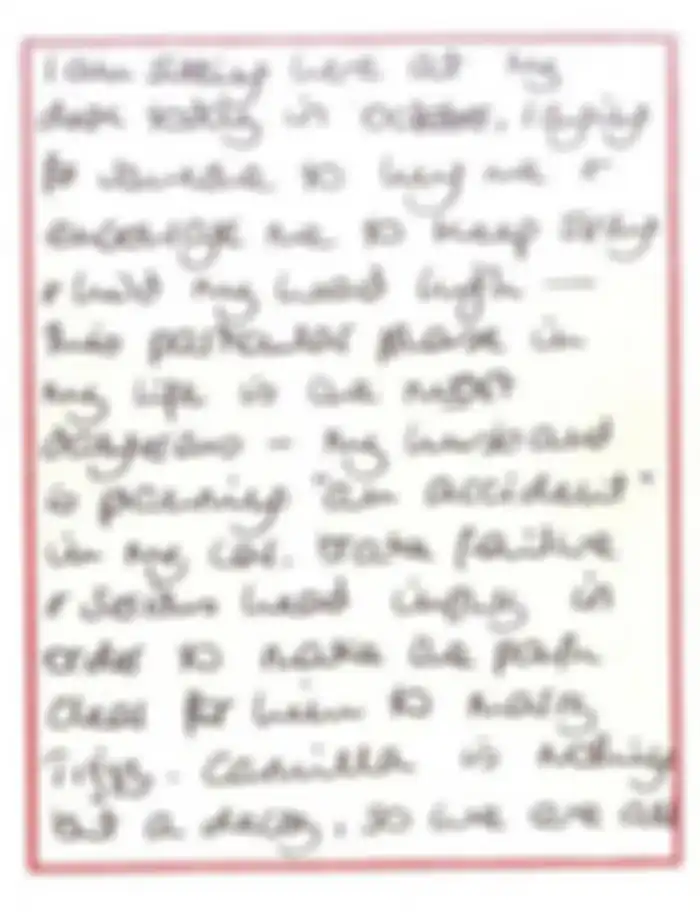 I am sitting here at my
desk today in October, longing
for someone to hug me &
encourage me to keep strong
& hold my head high —
this particular phase in
my life is the most
dangerous - my husband
is planning "an accident"
in my car. brake failure
& serious head injury in
order to make the path
clear for him to marry
Tiggy. Camilla is nothing
but a decoy, so we are